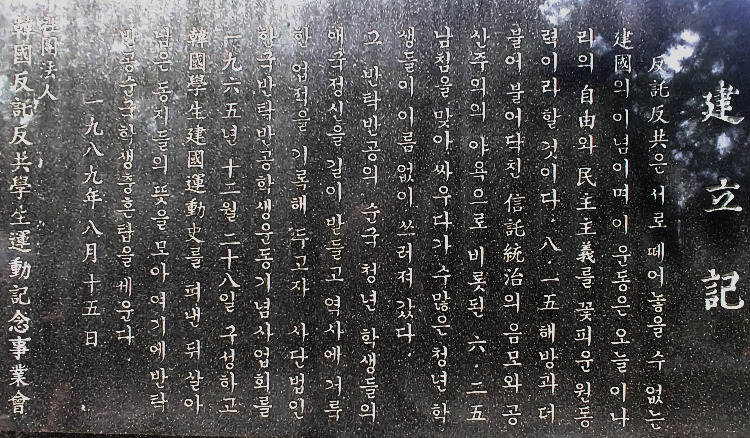 建立記
反託反共은 서로 떼어놓을 수 없는
建國의 이념이며 이 운동은 오늘 이나
리의 自由와 民主主義를 꽃피운 원동
력이라 할 것이다. 八·一五 해방과 더
불어 불어닥친 信託統治의 음모와 공
산주의의 야욕으로 비롯된 六·二五
남침을 맞아 싸우다가 수많은 청년 학
생들이 이름없이 쓰러져 갔다.
그 반탁반공의 순국 청년 학생들의
애국정신을 길이 받들고 역사에 거룩
한 업적을 기록해 두고자 사단법인
한국반탁반공학생운동기념사업회를
一九六五년 十二월 二十八일 구성하고
韓國學生建國運動史를 펴낸 뒤 살아
남은 동지들의 뜻을 모아 여기에 반탁
반공순국학생충혼탑을 세운다.
一九八九年 八月 十五日
社團法人
韓國反託反共學生運動記念事業會